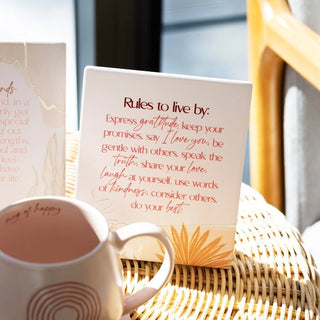 Rules to live by:
Express gratitude, keep your
promises, say I love you, be
gentle with others, speak the
truth, share your love,
laugh at yourself, use words
of kindness, consider others,
do your best.
nds
nd, in a
only get
special
g out
engths,
ul and
feel
have
r life.
mug of happy